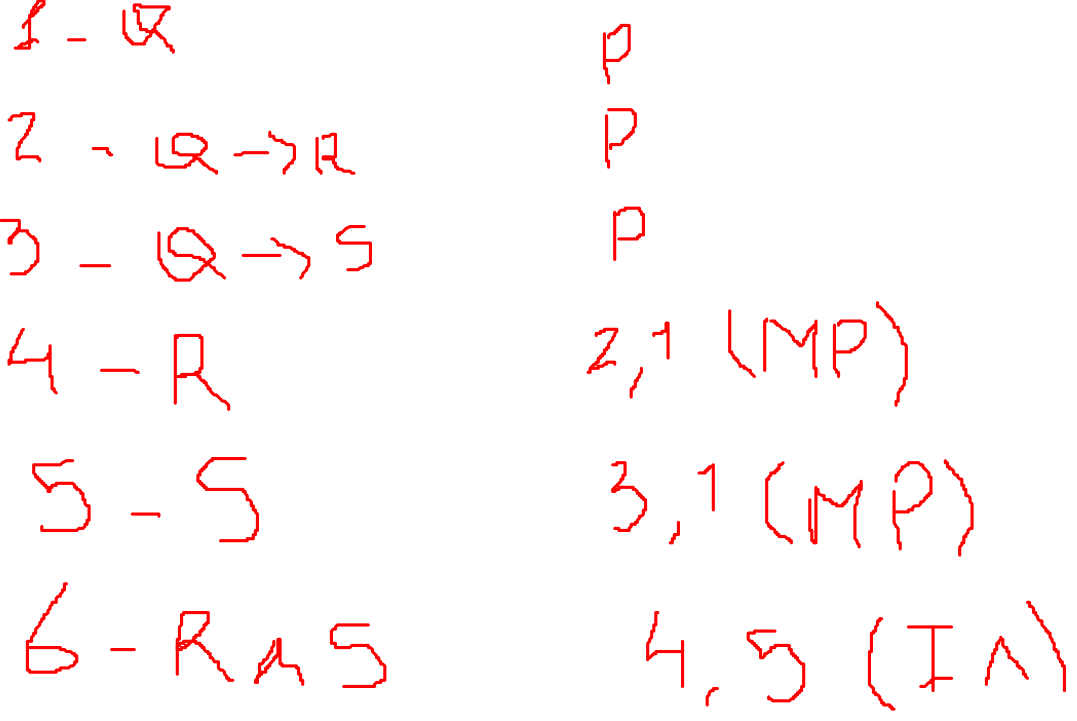 1 - Q P
2 - Q → R P
3 - Q → S P
4 - R 2,1 (MP)
5 - S 3,1 (MP)
6 - R ∧ S 4,5 (I∧)